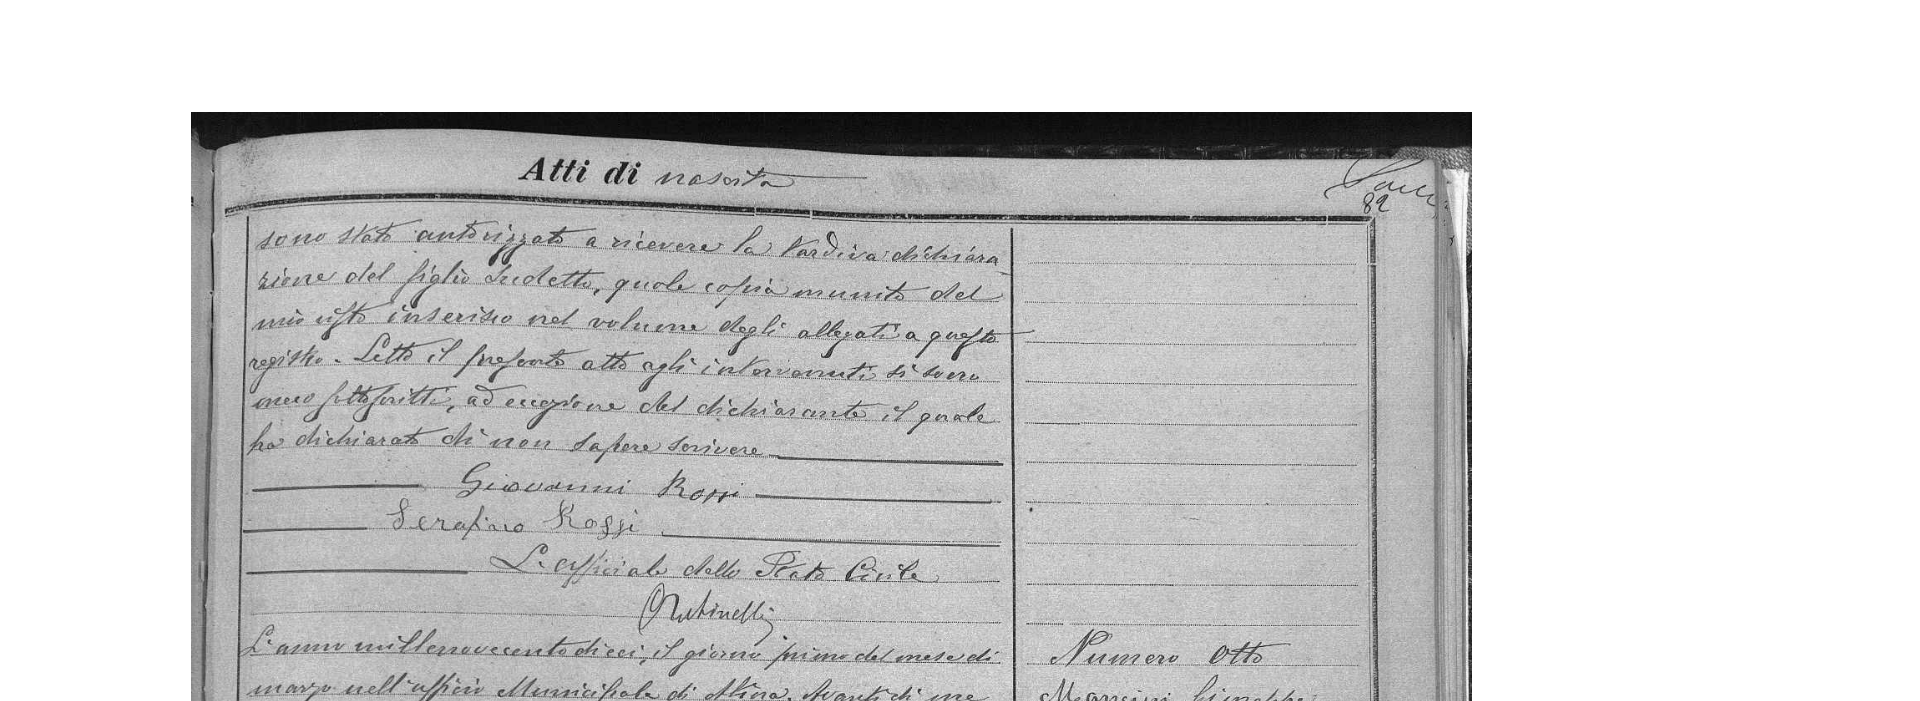 Atti di nascita
82
sono stato autorizzato a ricevere la tardiva dichiara
zione del figlio sudetto, quale copia munito del
mio visto inserisco nel volume degli allegati a questo
registro. Letto il presente atto agli intervenuti si sono
meco sottoscritti, ad eccezione del dichiarante il quale
ha dichiarato di non sapere scrivere
Giovanni Rossi
Serafino Rossi
L'officiale dello Stato Civile
L'anno millenovecentodieci, il giorno primo del mese di
Numero Otto
marzo nell'ufficio Municipale di Atina. Avanti di me
Mancini Giuseppe